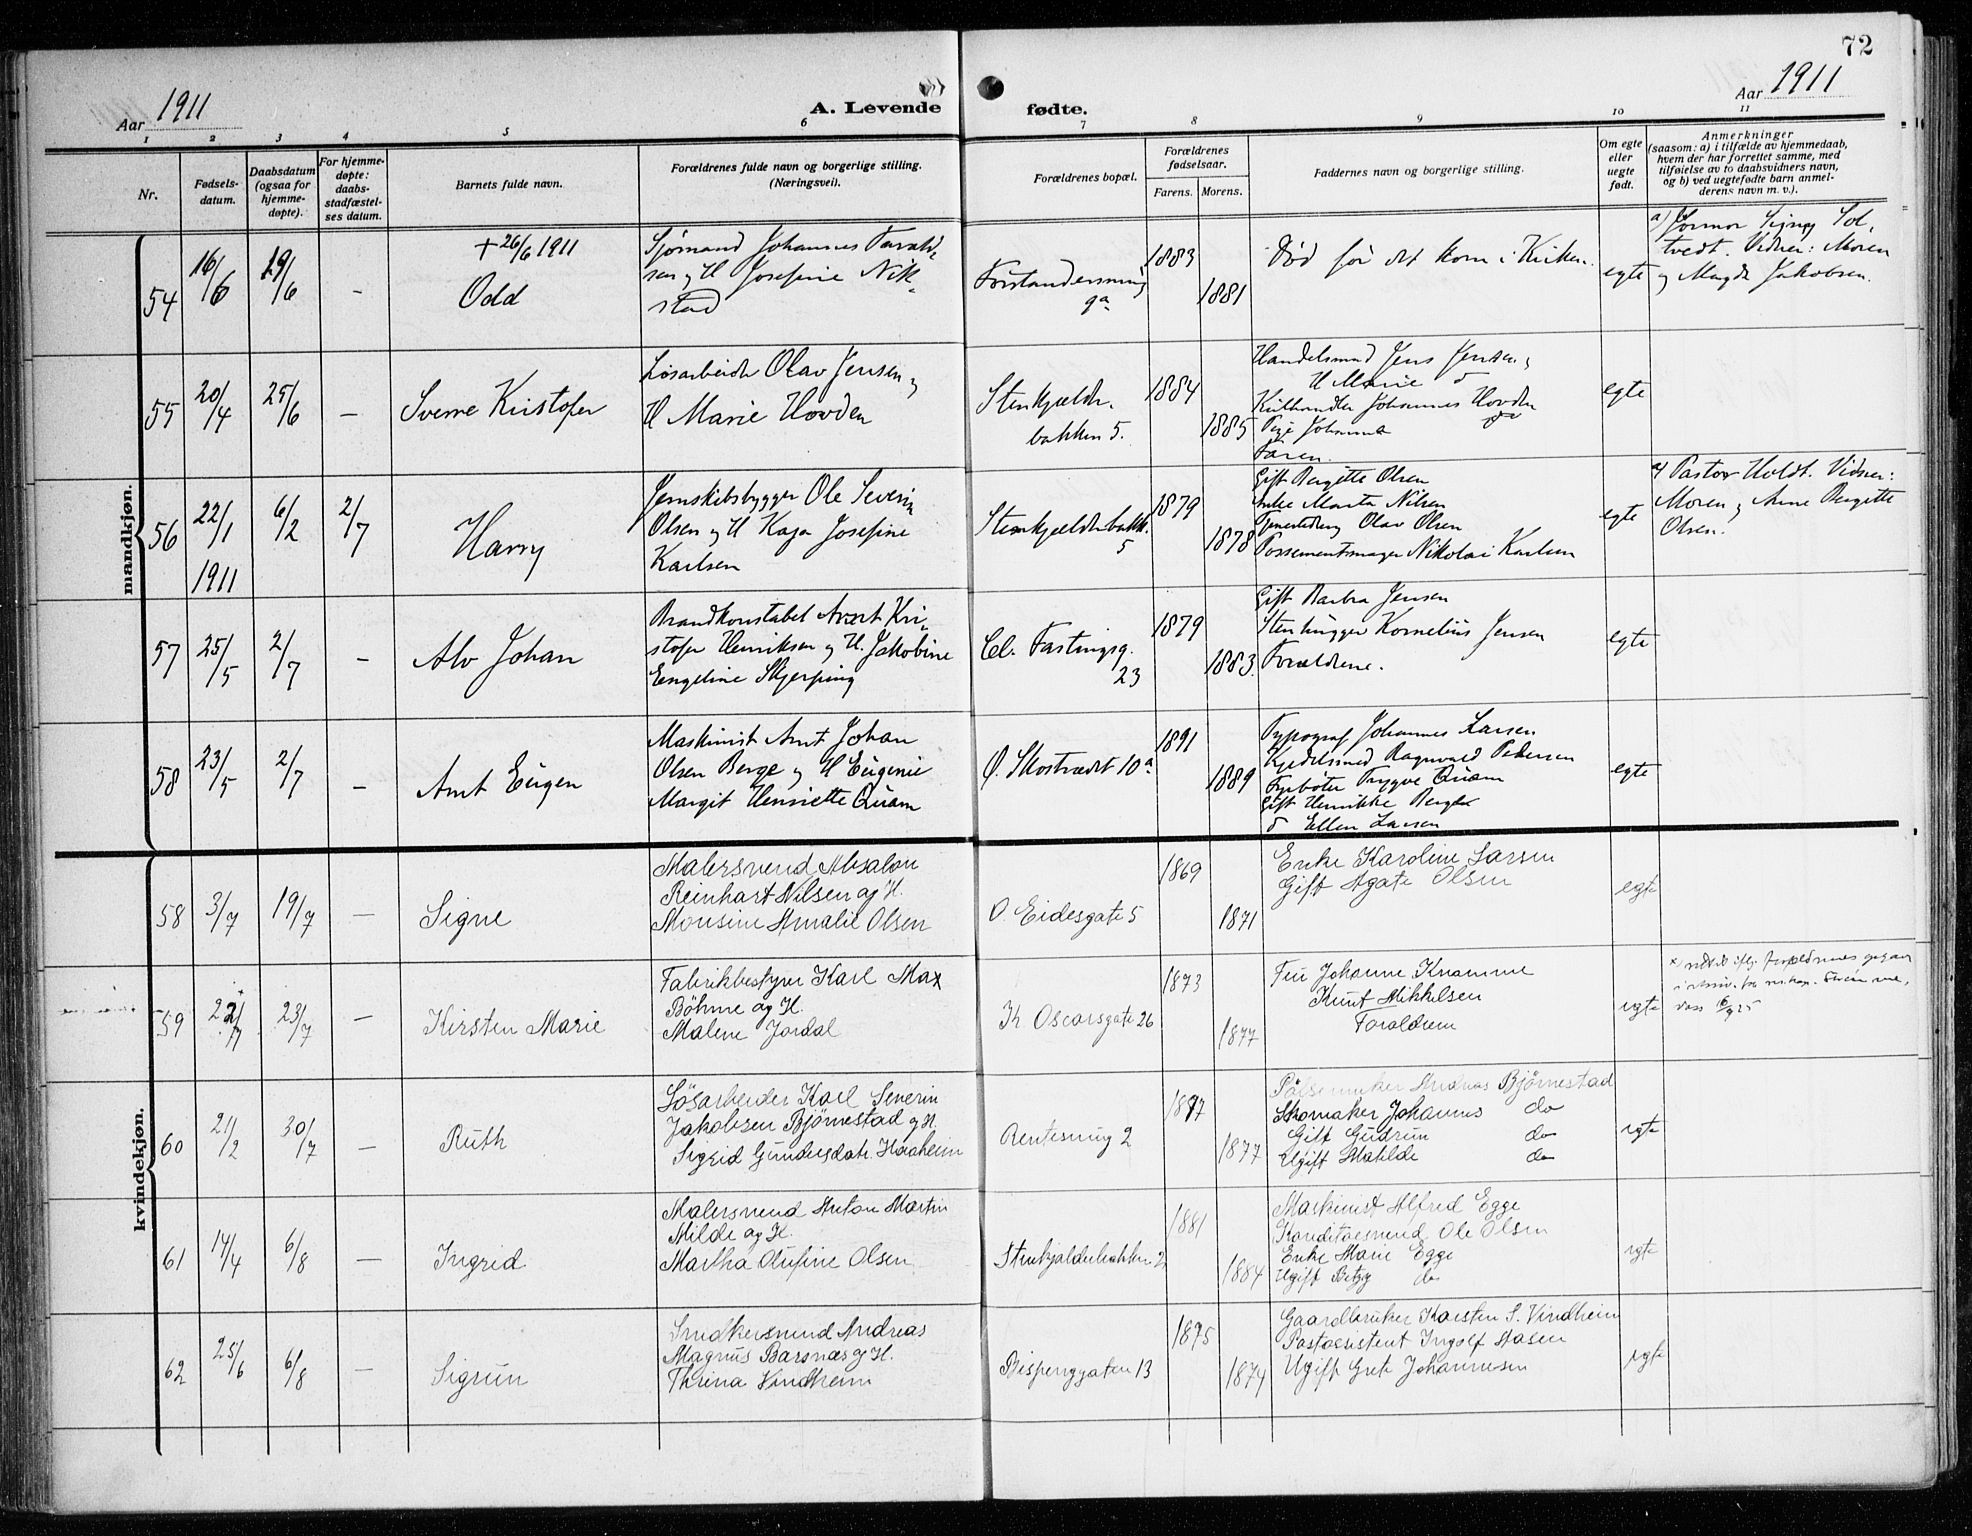 72
Aar 1911
A. Levende
fødte.
Aar 1911
1 2 3 4 5 6 7 8 9 10 11
Nr.
Fødsels-
datum.
Daabsdatum
(ogsaa for
hjemme-
døpte).
For hjemme-
døpte:
daabs-
stadfæstel-
ses datum.
Barnets fulde navn.
Forældrenes fulde navn og borgerlige stilling.
(Næringsvei).
Forældrenes bopæl.
Forældrenes
fødselsaar.
Farens. Morens.
Faddernes navn og borgerlige stilling.
Om egte
eller
uegte
født.
Anmerkninger
(saasom: a) i tilfælde av hjemmedaab,
hvem der har forrettet samme, med
tilføielse av to daabsvidners navn,
og b) ved uegtefødte barn anmel-
derens navn m. v.).
mandkjøn.
54
16/6
19/6
–
+ 26/6 1911
Odd
Sjømand Johannes
sen og H Josefine Nik-
stad
ga
1883
1881
Død før det kom i Kirken.
egte
a) Jormor Signy Sol-
tvedt. Vidner: Moren
og Magda Jakobsen.
55
20/4
25/6
–
Sverre Kristofer
Løsarbeider Olav Jensen og
H Marie Hovden
Stenkjelder-
bakken 5.
1884
1885
Handelsmand Jens Jensen,
H Marie do
Kulhandler Johannes Hovden
Pige Johanna do
Faren.
egte
56
22/1
1911
6/2
2/7
Harry
Jernskibsbygger Ole Severin
Olsen og H Kaja Josefine
Karlsen
Stenkjelderbakk.
5
1879
1878
Gift Bergitte Olsen
Enke Marta Nilsen
Olav Olsen
Possementmager Nikolai Karlsen
egte
a) Pastor Holdt. Vidner:
Moren og Anne Bergitte
Olsen.
57
25/5
2/7
–
Alv Johan
Brandkonstabel Arnt Kri-
stofer Henriksen og H. Jakobine
Engeline Skjerping
Cl. Fastingsg.
23
1879
1883.
Gift Barbra Jensen
Stenhugger Kornelius Jensen
Forældrene.
egte
58
23/5
2/7
–
Arnt Eugen
Maskinist Arnt Johan
Olsen Berge og H Eugenie
Margit Henriette Quam
Ø. Skostrædet 10a
1891
1889
Typograf Johannes Larsen
Kjedelsmed Ragnvald Pedersen
Fyrbøter Trygve Quam
Gift Henrikke Berge
do Ellen Larsen
egte
kvindekjøn.
58
3/7
19/7
–
Signe
Malersvend Absalon
Reinhart Nilsen og H.
Monsine Amalie Olsen
O. Eidesgate 5
1869
1871
Enke Karoline Larsen
Gift Agate Olsen
egte
59
23/7
–
Kirsten Marie
Fabrikbestyrer Karl Max
Böhme og H.
Malene Jordal
K Oscarsgate 26
1873
1877
Johanne Knamme
Knut Mikkelsen
Foraldrene
egte
60
21/2
30/7
–
Ruth
Løsarbeider Karl Severin
Jakobsen Bjørnestad og H.
Sigrid Gundersdatr. Haaheim
Rentesmug 2
1877
1877
Pølsemaker Andreas Bjørnestad
Skomaker Johannes do
Gift Gudrun do
Ugift Matilde do
egte
61
14/4
6/8
–
Ingrid
Malersvend Anton Martin
Milde og H.
Martha Olufine Olsen
Stenkjælderbakken 2
1881
1884
Maskinist Alfred Egge
Konditorsvend Ole Olsen
Enke Marie Egge
Ugift Betzy do
egte
62
25/6
6/8
–
Sigrun
Snedkersvend Andreas
Magnus Barsnæs og H.
Thrina Vindheim
Bispenggaten 13
1875
1874
Gaardbruker Karsten S. Vindheim
Postassistent Ingolf Aasen
Ugift Grete Johannesen
egte